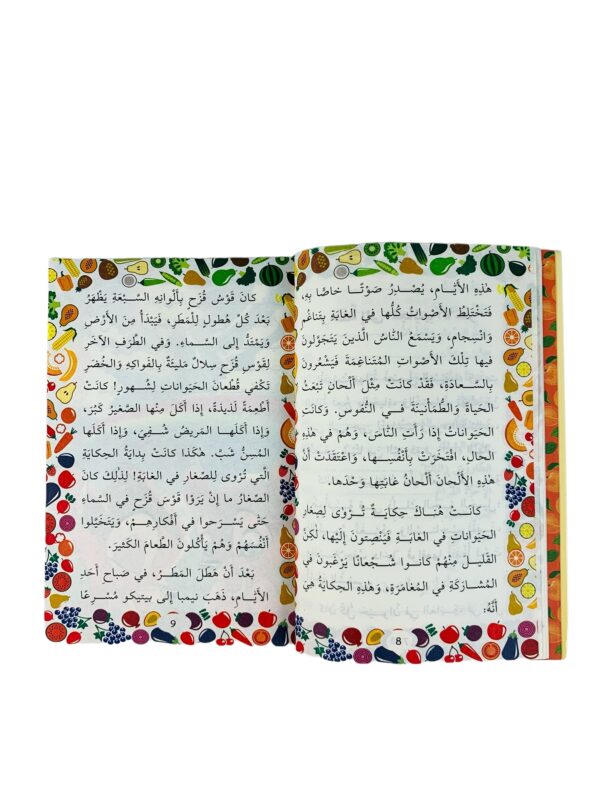 هٰذِهِ الأَيَّامِ، يُصْدِرُ صَوْتًا خاصًا بِهِ،
فَتَخْتَلِطُ الأَصْواتُ كُلُّها في الغابَةِ بِتَناغُمٍ
وانْسِجامٍ، وَيَسْمَعُ النّاسُ الَّذينَ يَتَجَوَّلونَ
فيها تِلْكَ الأَصْواتِ المُتَناغِمَةَ فَيَشْعُرونَ
بِالسَّعادَةِ، فَقَدْ كانَتْ مِثْلَ أَلْحانٍ تَبْعَثُ
الحَياةَ وَالطُّمَأْنينَةَ فـي النُّفوسِ. وَكانَتِ
الحَيَواناتُ إذا رَأَتِ النّاسَ، وَهُمْ في هٰذِهِ
الحالِ، افْتَخَرَتْ بِأَنْفُسِـها، وَاعْتَقَدَتْ أَنَّ
هٰذِهِ الأَلْحانَ أَلْحانُ غابَتِها وَحْدَها.
كانَتْ هُنـاكَ حِكايَـةٌ تُـرْوَى لِصِغارِ
الحَيَواناتِ في الغابَـةِ فَيُنْصِتونَ إلَيْها، لٰكِنَّ
القَليلَ مِنْهُم كانـوا شُـجْعانًا يَرْغَبـونَ في
المُشارَكَةِ في المُغامَرَةِ، وَهٰذِهِ الحِكايَةُ هِيَ
أَنَّهُ:
8
كانَ قَوْسُ قُزَحٍ بِأَلْوانِهِ السَّبْعَةِ يَظْهَرُ
بَعْدَ كُلِّ هُطولٍ لِلْمَطَرِ، فَيَبْدَأُ مِنَ الأَرْضِ
وَيَمْتَدُّ إلى السَّماءِ. وفي الطَّرَفِ الآخَرِ
لِقَوْسِ قُزَحٍ سِلالٌ مَليئَةٌ بِالفَواكِهِ وَالخُضَرِ
تَكْفي قُطْعانَ الحَيَواناتِ لِشُهورٍ! كانَتْ
أَطْعِمَةً لَذيذَةً، إذا أَكَلَ مِنْها الصَّغيرُ كَبُرَ،
وَإذا أَكَلَهـا المَريضُ شُـفِيَ، وَإذا أَكَلَها
المُسِنُّ شَبَّ. هٰكَذا كانَتْ بِدايَةُ الحِكايَةِ
الَّتي تُرْوى لِلصِّغارِ في الغابَةِ! لِذٰلِكَ كانَ
الصِّغارُ ما إنْ يَرَوْا قَوْسَ قُزَحٍ في السَّماءِ
حَتَّى يَسْرَحوا في أَفْكارِهِمْ، وَيَتَخَيَّلوا
أَنْفُسَهُمْ وَهُمْ يَأْكُلونَ الطَّعامَ الكَثيرَ.
بَعْدَ أَنْ هَطَلَ المَطَرُ، في صَباحِ أَحَدِ
الأَيّـامِ، ذَهَبَ نيمبا إلى بيتيكو مُسْرِعًا
9